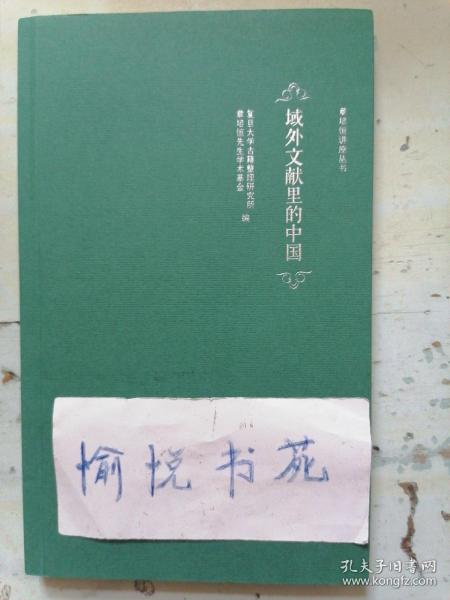 章培恒讲座丛书
域外文献里的中国
复旦大学古籍整理研究所
章培恒先生学术基金
编
愉悦书苑
孔夫子旧书网
www.kongfz.com